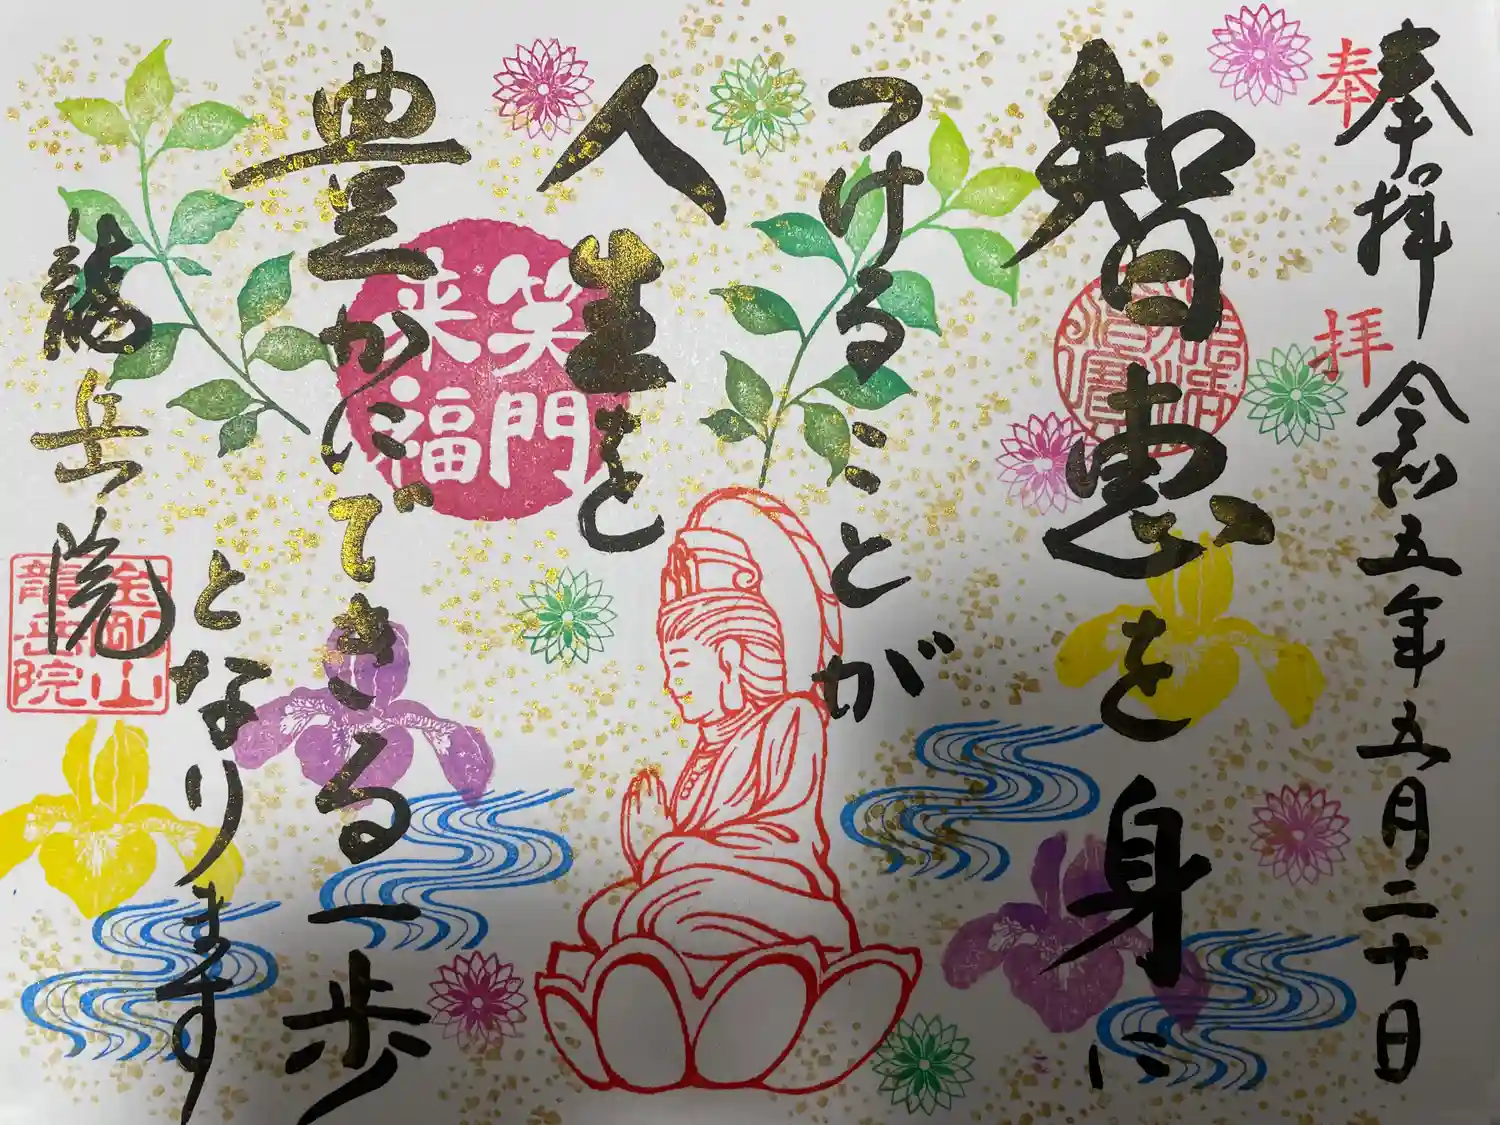 奉拝 令和五年五月二十日
奉拝
智恵を身に
つけることが
人生を
豊かにできる一歩
となります
龍岳院
笑門
来福
金剛山
龍岳院